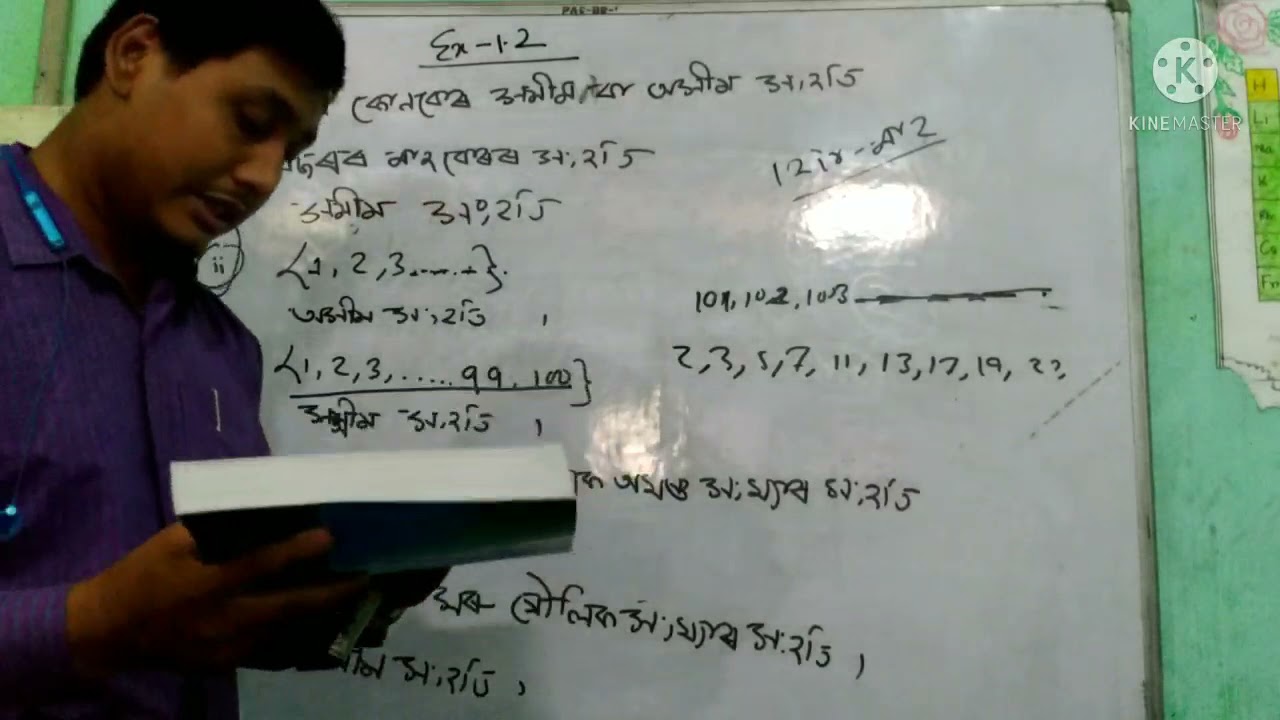 Ex-1.2
কোনবোৰ সসীম বা অসীম সংহতি
বছৰৰ মাহবোৰৰ সংহতি
12টা-মাহ
সসীম সংহতি
ii
{1, 2, 3......}.
101, 102, 103
অসীম সংহতি,
{1, 2, 3, ..... 99, 100}
2, 3, 5, 7, 11, 13, 17, 19, 23,
সসীম সংহতি,
অখণ্ড সংখ্যাৰ সংহতি
মৌলিক সংখ্যাৰ সংহতি,
সংহতি,
KINEMASTER
H
Li
Na
K
Rb
Cs
Fr